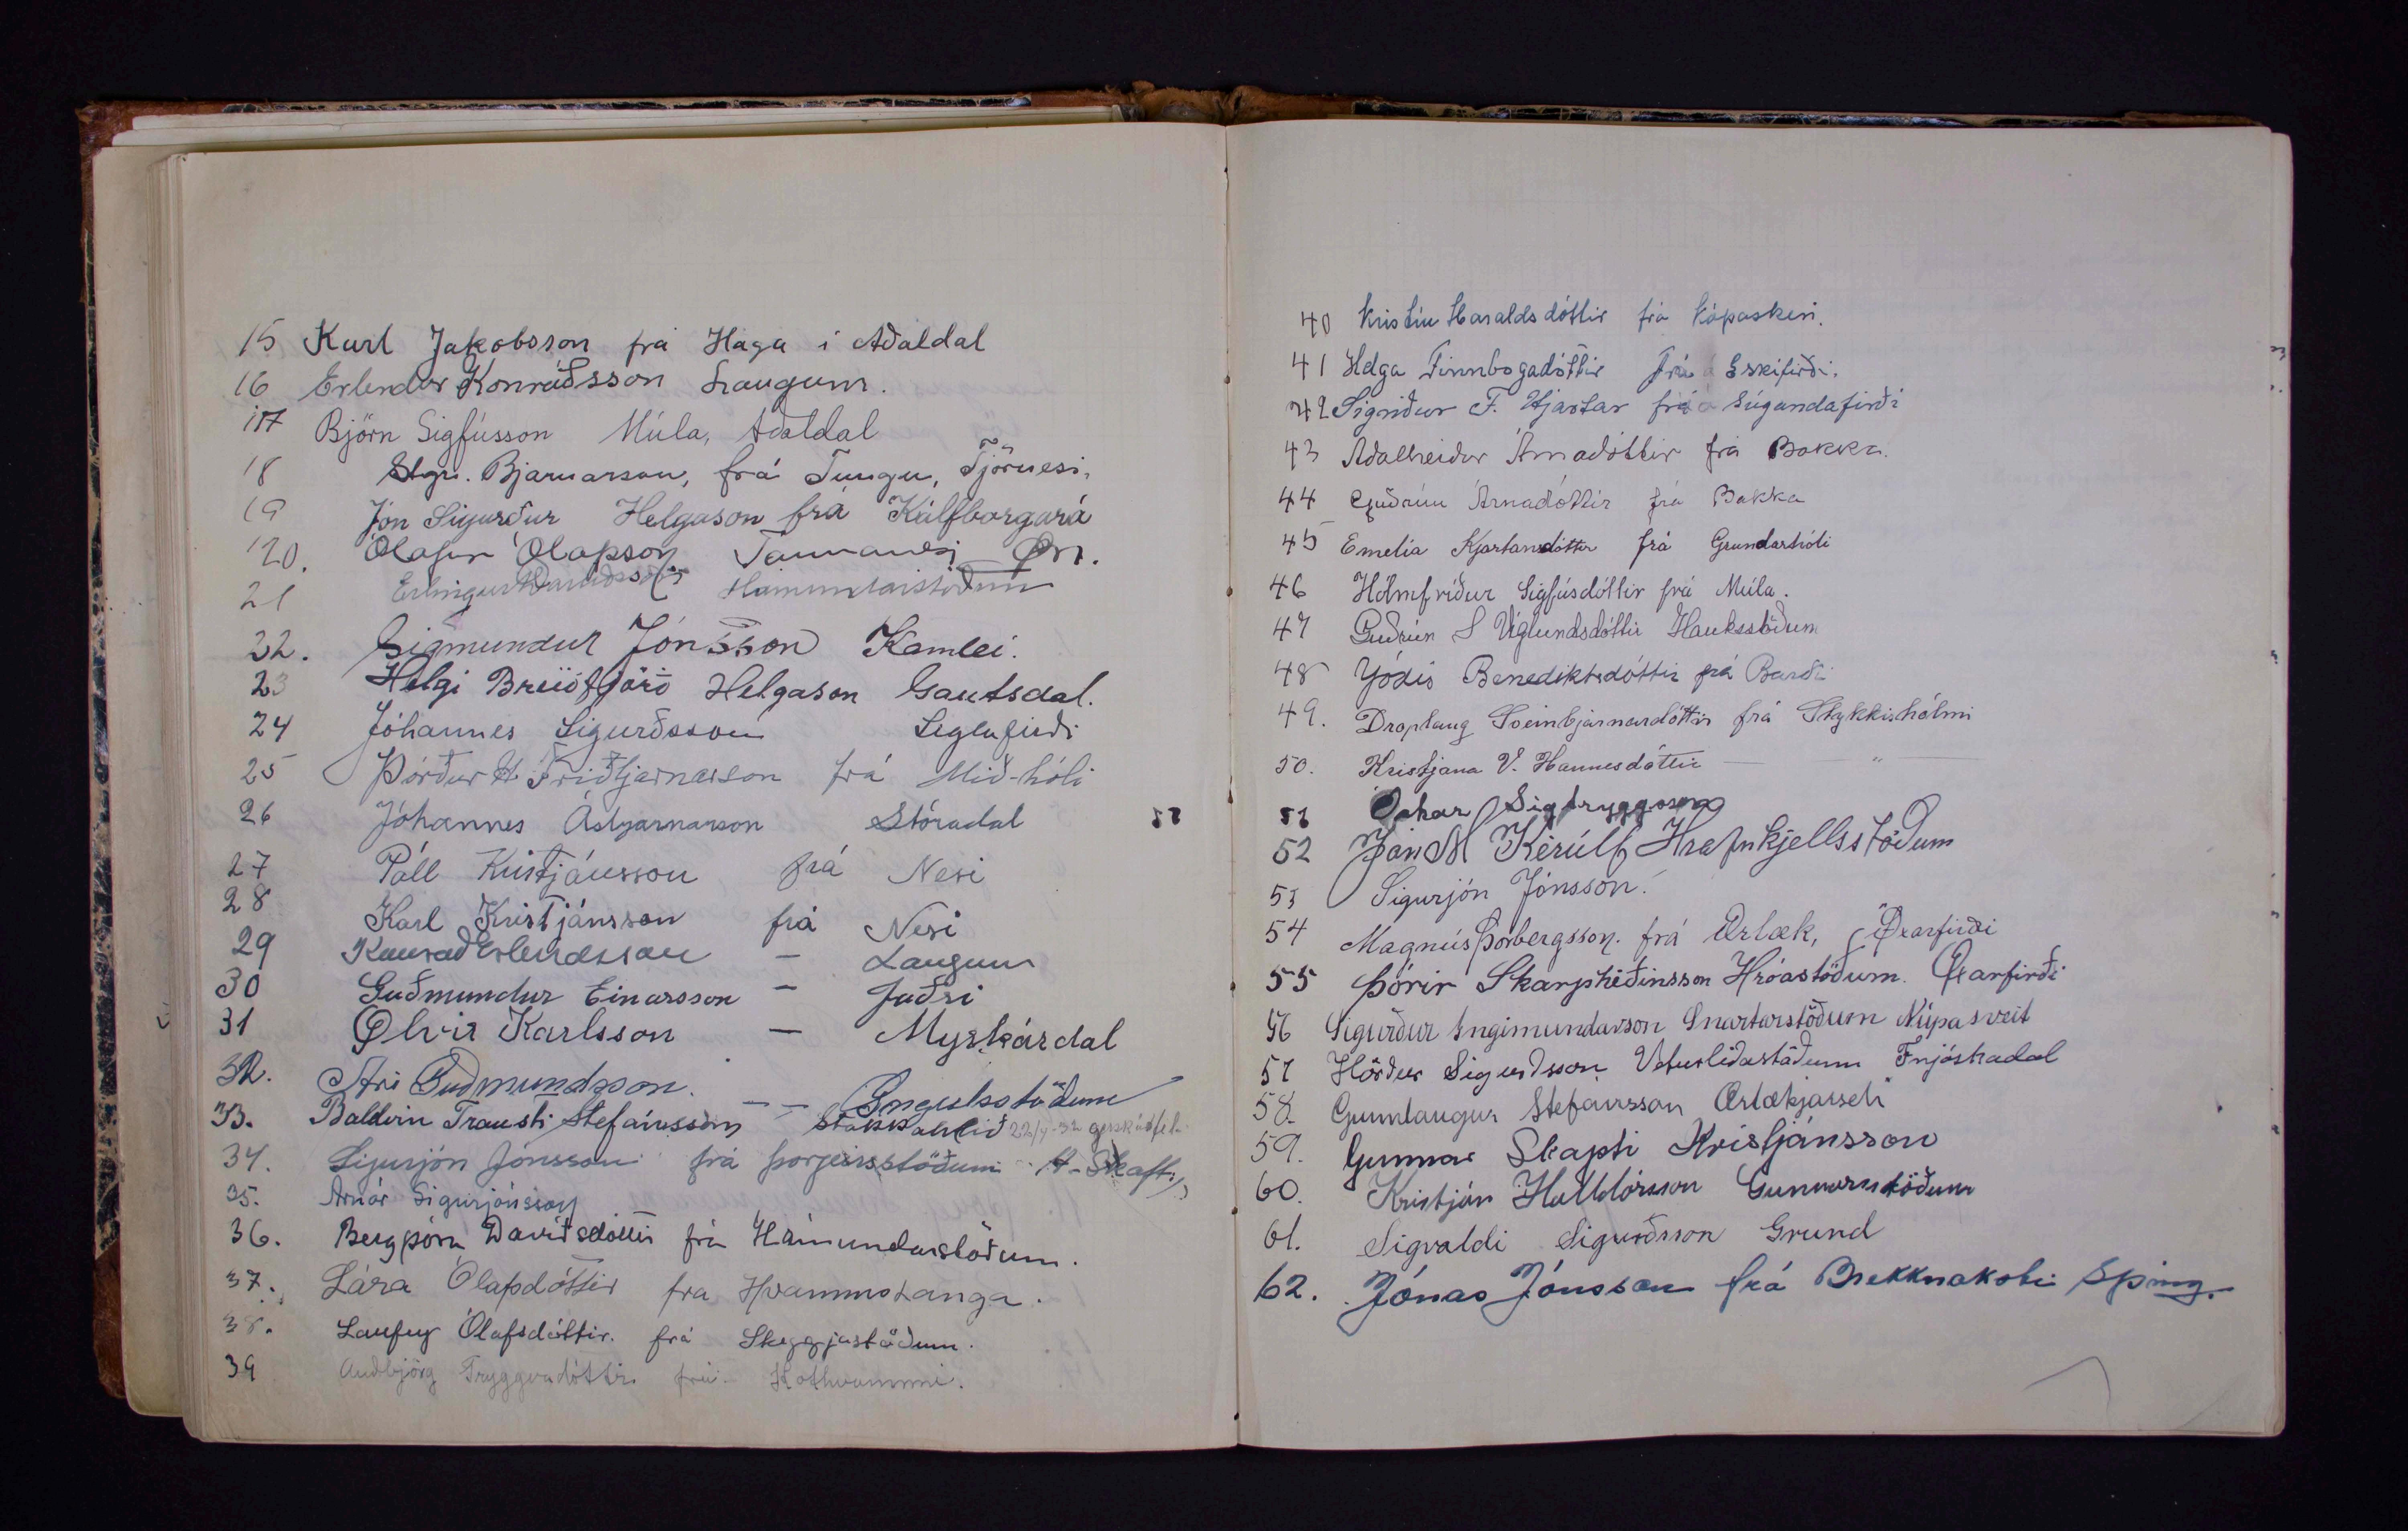 15 Karl Jakobsson frá Haga í Aðaldal
16 Erlendur Konráðsson Laugum.
17 Björn Sigfússon Múla, Aðaldal
18 Stgr. Bjarnarson, frá Tungu, Tjörnesi.
19 Jón Sigurður Helgason frá Kálfborgará
20. Ólafur Ólafsson
21 Erlingur Davíðsson Hámundarstöðum
22. Sigmundur Jónsson Kamlei.
23 Helgi Breiðfjörð Helgason Gautsdal.
24 Jóhannes Sigurðsson Siglufirði
25 Þórður H. Friðbjarnarson frá Mið-hóli
26 Jóhannes Ásbjarnarson Stóradal
27 Páll Kristjánsson frá Nesi
28 Karl Kristjánsson frá Nesi
29 Konráð Erlendsson - Laugum
30 Guðmundur Einarsson - Jaðri
31 Ølvir Karlsson - Myrkárdal
32. Ari Guðmundsson. - - Engihstöðum
33. Baldvin Trausti Stefánsson Stakkahlíð 22/4-32
34. Sigurjón Jónsson frá Þorgeirsstöðum A-Skaft.
35. Arnór Sigurjónsson
36. Bergþóra Davíðsdóttir frá Hámundarstöðum.
37. Lára Ólafsdóttir fra Hvammstanga.
38. Laufey Ólafsdóttir. frá Skeggjastöðum.
39 Auðbjörg Tryggvadóttir frá Kothvammi.
40 Kristín Haraldsdóttir frá Kópaskeri.
41 Helga Finnbogadóttir Frá Eskifirði.
42 Sigríður F. Hjartar frá Súgandafirði
43 Aðalheiður Árnadóttir frá Bakka.
44 Guðrún Árnadóttir frá Bakka
45 Emelía Kjartansdóttir frá Grundarhóli
46 Hólmfríður Sigfúsdóttir frá Múla.
47 Guðrún S Víglundsdóttir Hauksstöðum
48 Jódís Benediktsdóttir frá Barði
49. Droplaug Sveinbjarnardóttir frá Stykkishólmi
50. Kristjana V. Hannesdóttir — " —
51 Óskar Sigtryggsson
52 Jón M Kérúlf Hrafnkjellsstöðum
53 Sigurjón Jónsson.
54 Magnús Þorbergsson. frá Ærlæk, Øxarfirði
55 Þórir Skarphéðinsson Hróastöðum. Øxarfirði
56 Sigurður Ingimundarson Snartarstöðum Núpasveit
57 Hörður Sigurðsson Veturliðastöðum Fnjóskadal
58. Gunnlaugur Stefánsson Ærlækjarseli
59. Gunnar Skapti Kristjánsson
60. Kristján Halldórsson Gunnarsstöðum
61. Sigvaldi Sigurðsson Grund
62. Jónas Jónsson frá Brekknakoti S.þing.